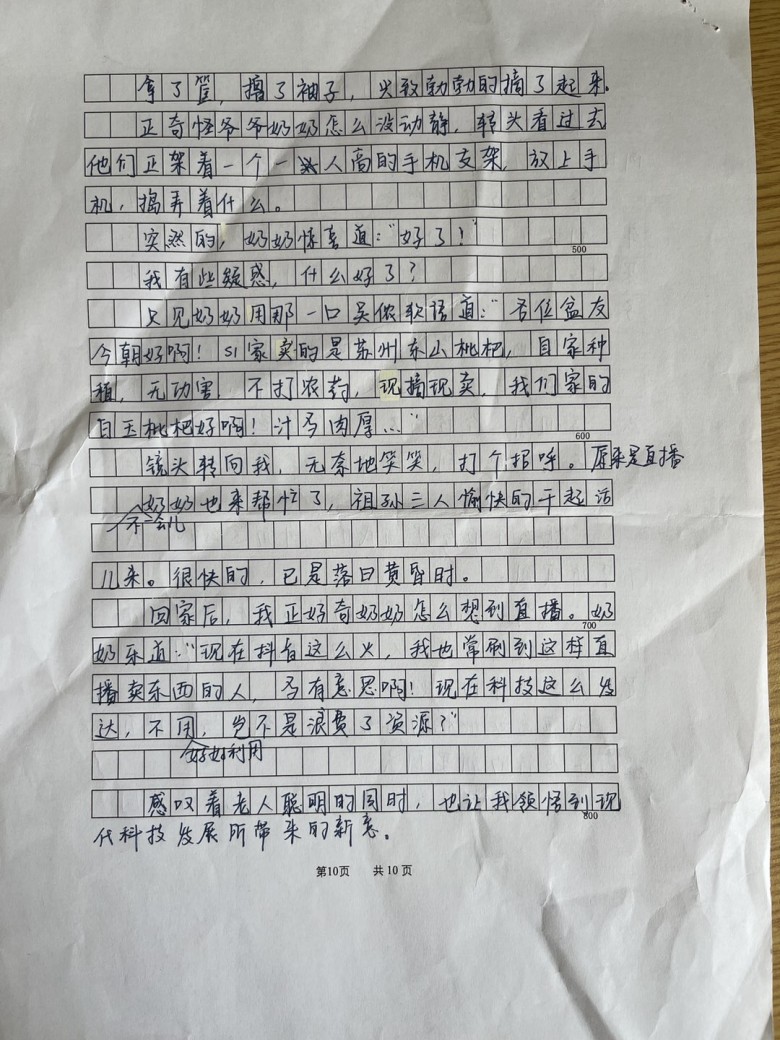 拿了筐，撸了袖子，兴致勃勃的摘了起来。
正奇怪爷爷奶奶怎么没动静，转头看过去
他们正架着一个一人高的手机支架，放上手
机，捣弄着什么。
突然的，奶奶惊喜道：“好了！”
500
我有些疑惑，什么好了？
只见奶奶用那一口吴侬软语道：“各位盆友
今朝好啊！SI家卖的是苏州东山枇杷，自家种
植，无功害，不打农药，现摘现卖，我们家的
白玉枇杷好啊！汁多肉厚...”
600
镜头转向我，无奈地笑笑，打个招呼。原来是直播
奶奶也来帮忙了，祖孙三人愉快的干起活
不一会儿
儿来。很快的，已是落日黄昏时。
回家后，我正好奇奶奶怎么想到直播。奶
700
奶乐道：“现在抖音这么火，我也常刷到这样直
播卖东西的人，多有意思啊！现在科技这么发
达，不用，岂不是浪费了资源？”
好好利用
感叹着老人聪明的同时，也让我领悟到现
800
代科技发展所带来的新意。
第10页 共10页